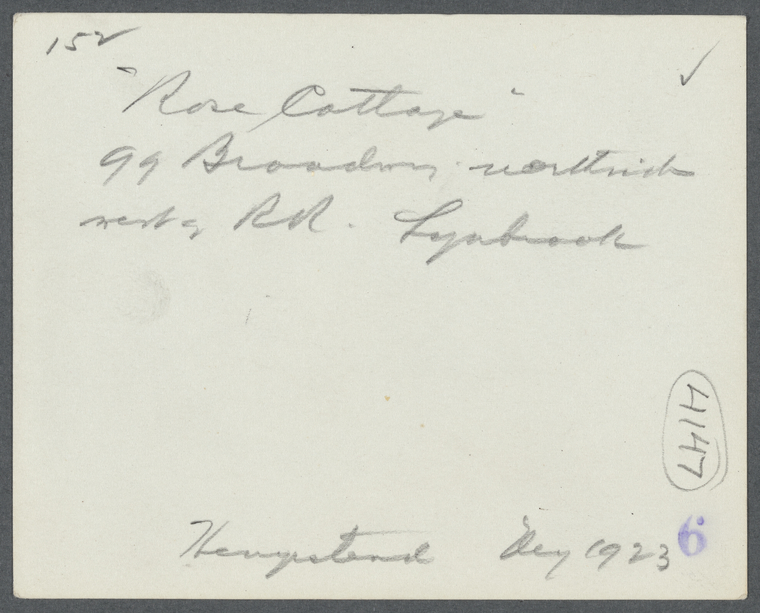 152
"Rose Cottage"
99 Broadway northside
west of RR. Lynbrook
4147
Hempstead Dey 1923
6